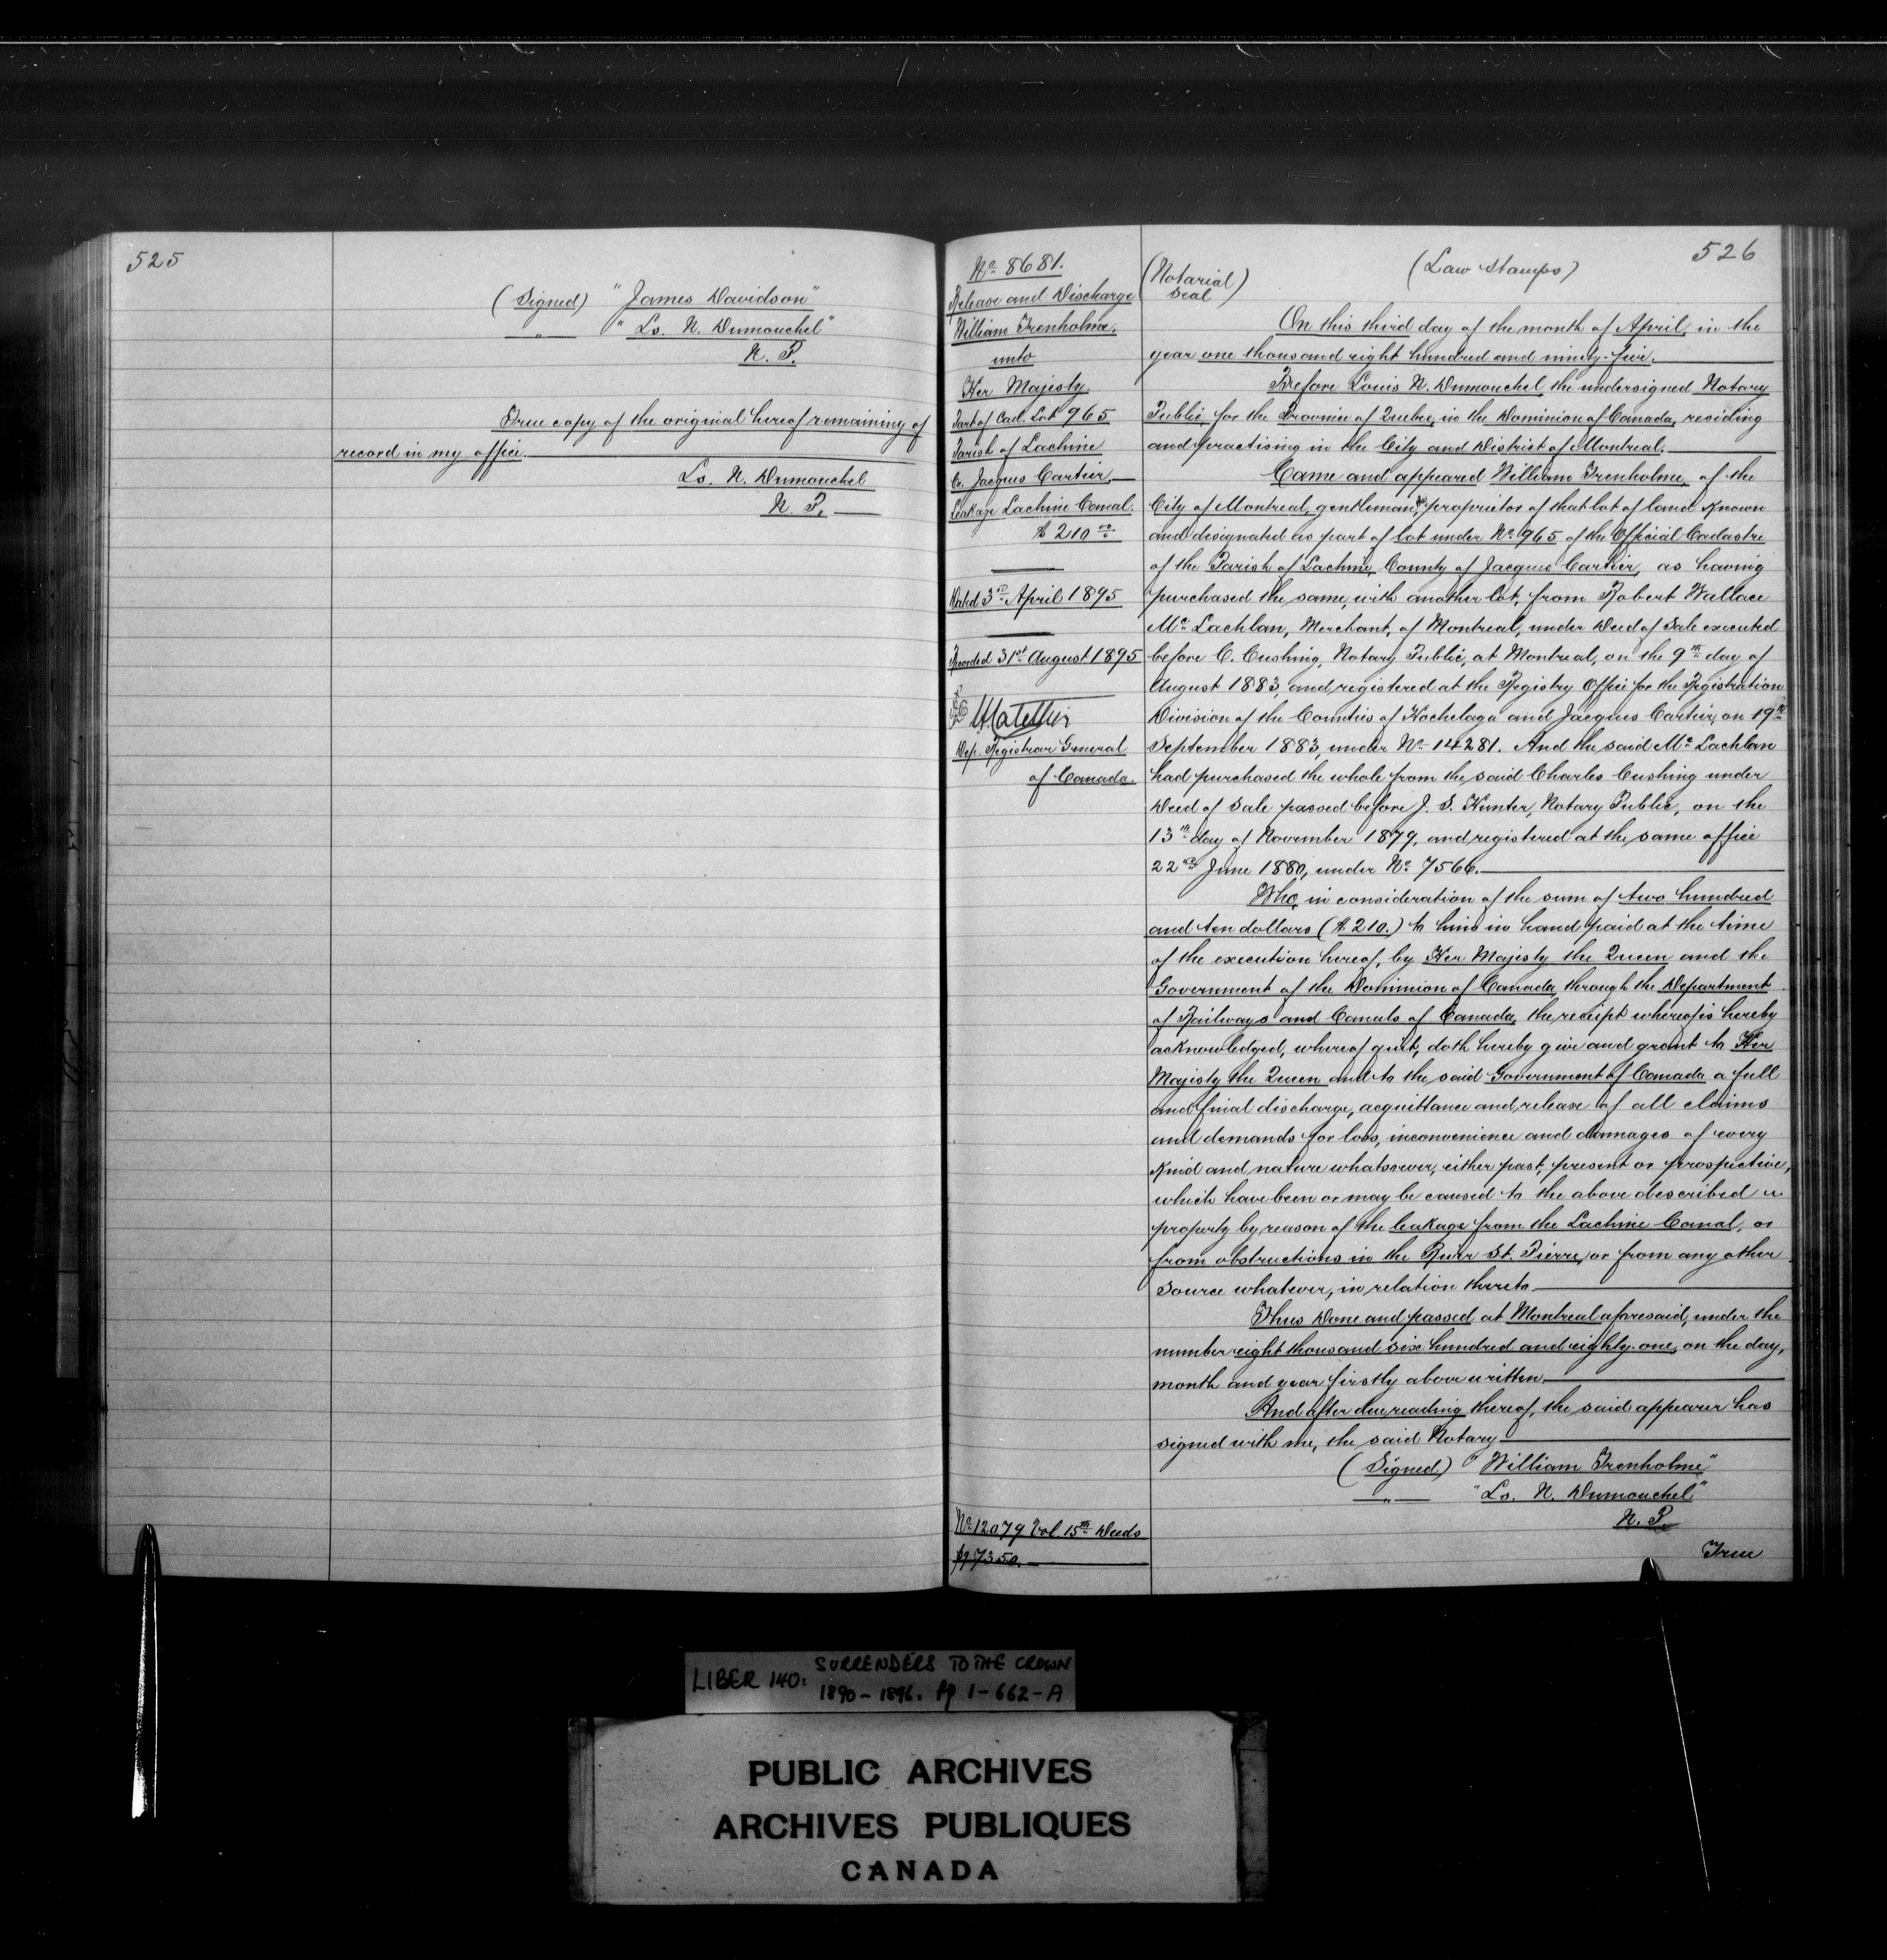 525
(Signed) "James Davidson"
" "Ls. N. Dumouchel"
N. P.
True copy of the original hereof remaining of
record in my office.
Ls. N. Dumouchel
N. P.
526
No 8681.
Release and Discharge
William Trenholme.
unto
Her Majesty.
Part of Cad. Lot 965
Parish of Lachine
Co. Jacques Cartier,
Leakage Lachine Canal.
$210 00
Dated 3rd April 1895
Recorded 31st August 1895
Dep. Registrar General
of Canada.
No 12079 Vol. 15th Deeds
pg 7350.
(Notarial Seal)
(Law Stamps)
On this third day of the month of April, in the
year one thousand eight hundred and ninety-five.
Before Louis N. Dumouchel, the undersigned Notary
Public, for the Province of Quebec, in the Dominion of Canada, residing
and practising in the City and District of Montreal.
Came and appeared William Trenholme, of the
City of Montreal, gentleman, proprietor of that lot of land known
and designated as part of lot under No 965 of the Official Cadastre
of the Parish of Lachine, County of Jacques Cartier, as having
purchased the same, with another lot, from Robert Wallace
Mc Lachlan, Merchant, of Montreal, under Deed of Sale executed
before C. Cushing, Notary Public, at Montreal, on the 9th day of
August 1883, and registered at the Registry Office for the Registration
Division of the Counties of Hochelaga and Jacques Cartier, on 19th
September 1883, under No 14281. And the said Mc Lachlan
had purchased the whole from the said Charles Cushing under
Deed of Sale passed before J. S. Hunter, Notary Public, on the
13th day of November 1879, and registered at the same office
22nd June 1880, under No 7566.
Who, in consideration of the sum of two hundred
and ten dollars ($210.) to him in hand paid at the time
of the execution hereof, by Her Majesty the Queen and the
Government of the Dominion of Canada, through the Department
of Railways and Canals of Canada, the receipt whereof is hereby
acknowledged, whereof quit, doth hereby give and grant to Her
Majesty the Queen and to the said Government of Canada a full
and final discharge, acquittance and release of all claims
and demands for loss, inconvenience and damages of every
kind and nature whatsoever, either past, present or prospective,
which have been or may be caused to the above described
property by reason of the leakage from the Lachine Canal, or
from obstructions in the River St. Pierre, or from any other
source whatever, in relation thereto.
Thus Done and passed at Montreal aforesaid, under the
number eight thousand six hundred and eighty-one, on the day,
month and year firstly above written.
And after due reading thereof, the said appearer has
signed with me, the said Notary.
(Signed) "William Trenholme"
" "Ls. N. Dumouchel"
N. P.
True
LIBER 140: SURRENDERS TO THE CROWN
1890-1896. pg 1-662-A
PUBLIC ARCHIVES
ARCHIVES PUBLIQUES
CANADA